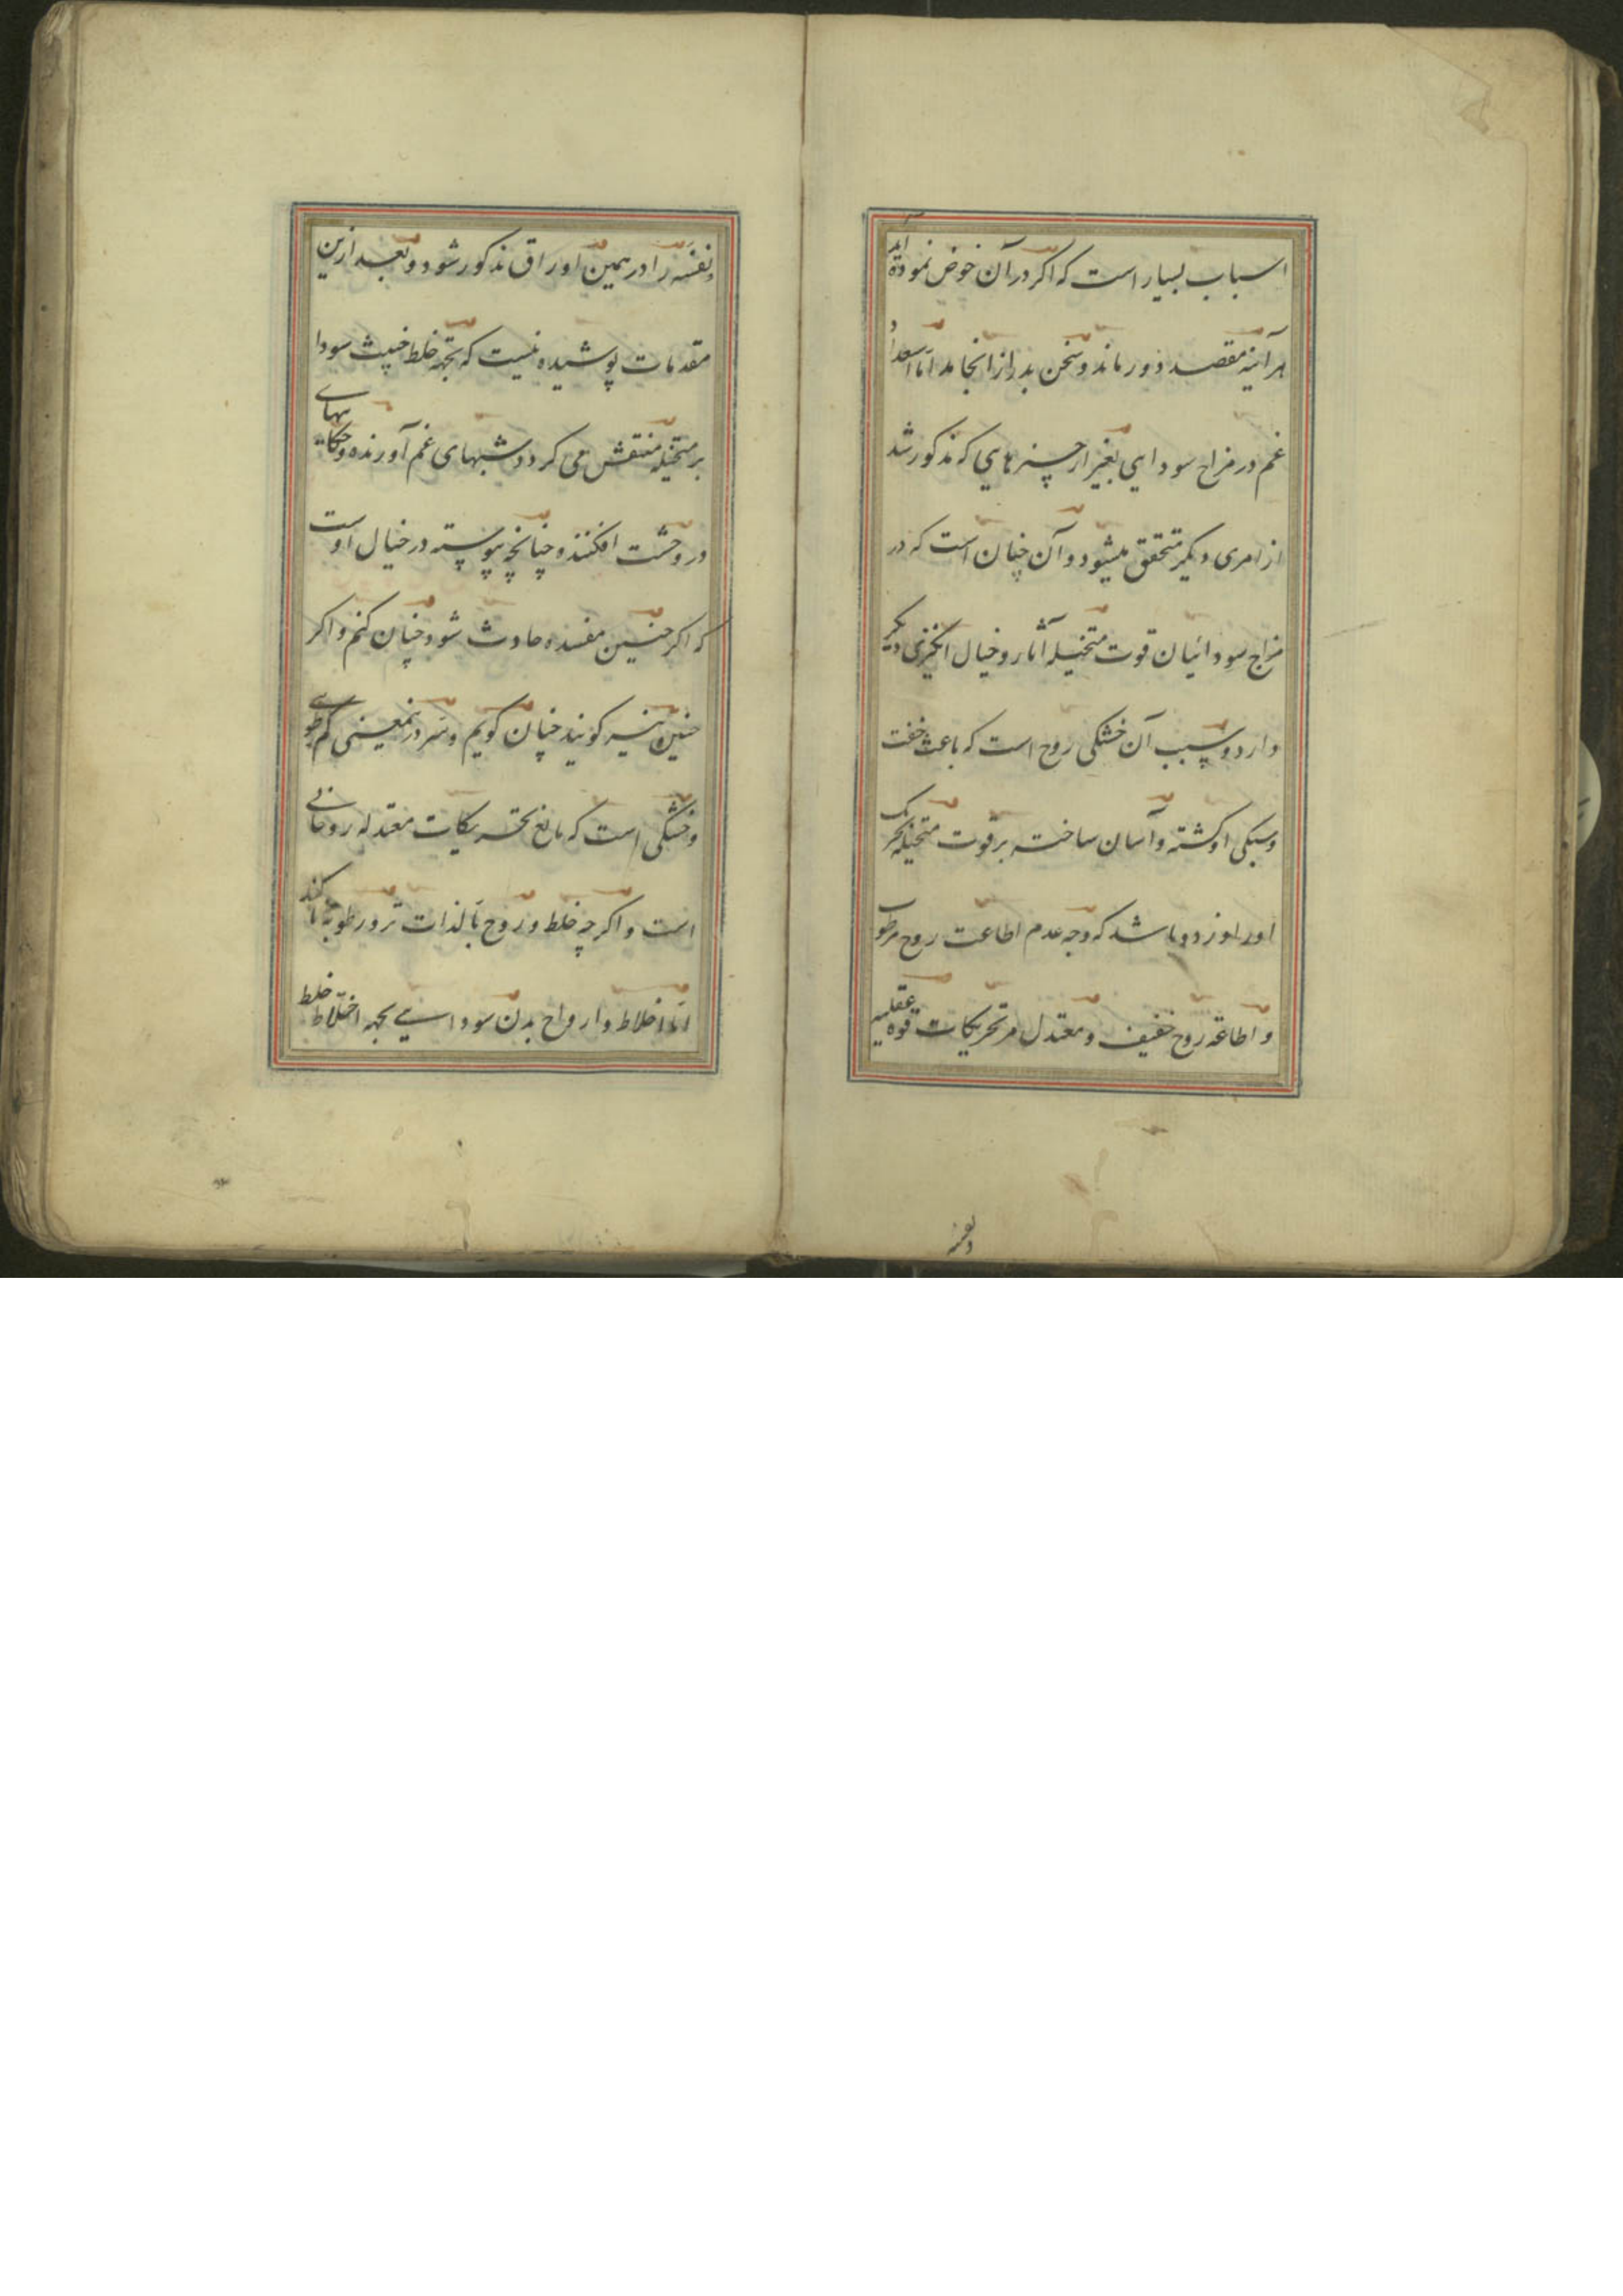 اسباب بسیار است که اکر در آن خوض نموده آید
هر آینه مقصد دور ماند و سخن بدراز انجامد اما استعداد
غم در مزاج سودایی بغیر از چیزهایی که مذکور شد
از امری دیکر متحقق میشود و آن چنان است که در
مزاج سودائیان قوت متخیله آثار و خیال انکیزی دیکر
دارد و سبب آن خشکی روح است که باعث خفت
و سبکی او کشته و آسان ساخته بر قوت متخیله تحریک
او را و زود باشد که وجه عدم اطاعت روح مرطوب
و اطاعة روح خفیف و معتدل مر تحریکات قوه عقلیه
و نفسه
و نفسه را در همین اوراق مذکور شود و بعد ازین
مقدمات پوشیده نیست که بجهة خلط خبیث سودا
بر متخیله منتقش می کردد شبهای غم آورنده و حکایتهای
در وحشت افکننده چنانچه پیوسته در خیال اوست
که اکر چنین مفسده حادث شود چنان کنم و اکر
چنین نیز کویند چنان کویم و سر درینمعنی کم رطوبتی
و خشکی است که مانع تحریکات معتدله روحانی
است و اکرچه خلط و روح بالذات تر و رطوبة ناکند
اما اخلاط و ارواح بدن سودایی بجهة اختلاط خلط